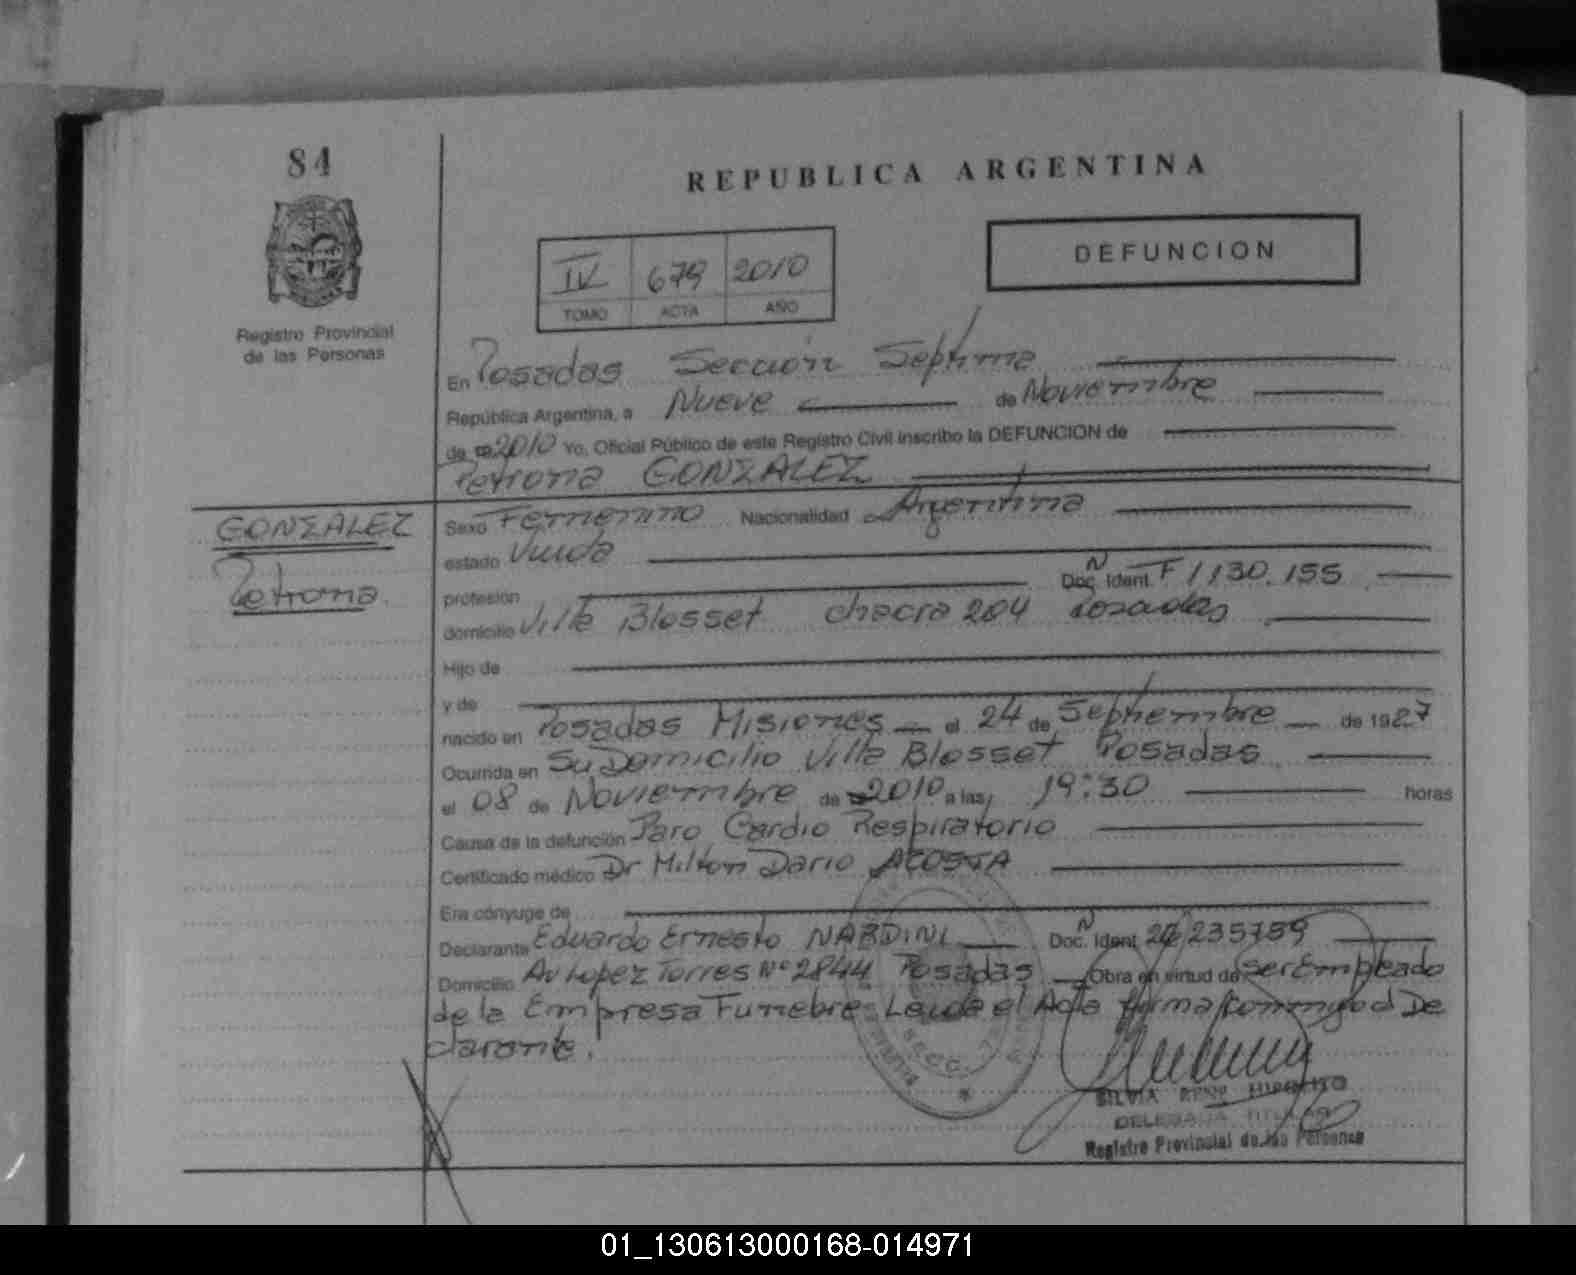 84
REPUBLICA ARGENTINA
Registro Provincial
de las Personas
IV 679 2010
TOMO ACTA AÑO
DEFUNCION
En Posadas Sección Séptima
República Argentina, a Nueve de Noviembre
de 2010 Yo, Oficial Público de este Registro Civil inscribo la DEFUNCION de
Petrona GONZALEZ
GONZALEZ
Petrona
Sexo Femenino Nacionalidad Argentina
estado Viuda
profesión Doc. Ident. N F 1130.155
domicilio Villa Blosset chacra 204 Posadas
Hijo de
y de
nacido en Posadas Misiones el 24 de Septiembre de 1927
Ocurrida en Su Domicilio Villa Blosset Posadas
el 08 de Noviembre de 2010 a las 19:30 horas
Causa de la defunción Paro Cardio Respiratorio
Certificado médico Dr Milton Dario ACOSTA
Era cónyuge de
Declarante Eduardo Ernesto NARDINI Doc. Ident. N 235759
Domicilio Av Lopez Torres Nº 2844 Posadas Obra en virtud de Ser Empleado
de la Empresa Funebre Leida el Acta firma conmigo el De
clarante.
SILVIA HIPOLITO
DELEGADA TITULAR
Registro Provincial de las Personas
01_130613000168-014971